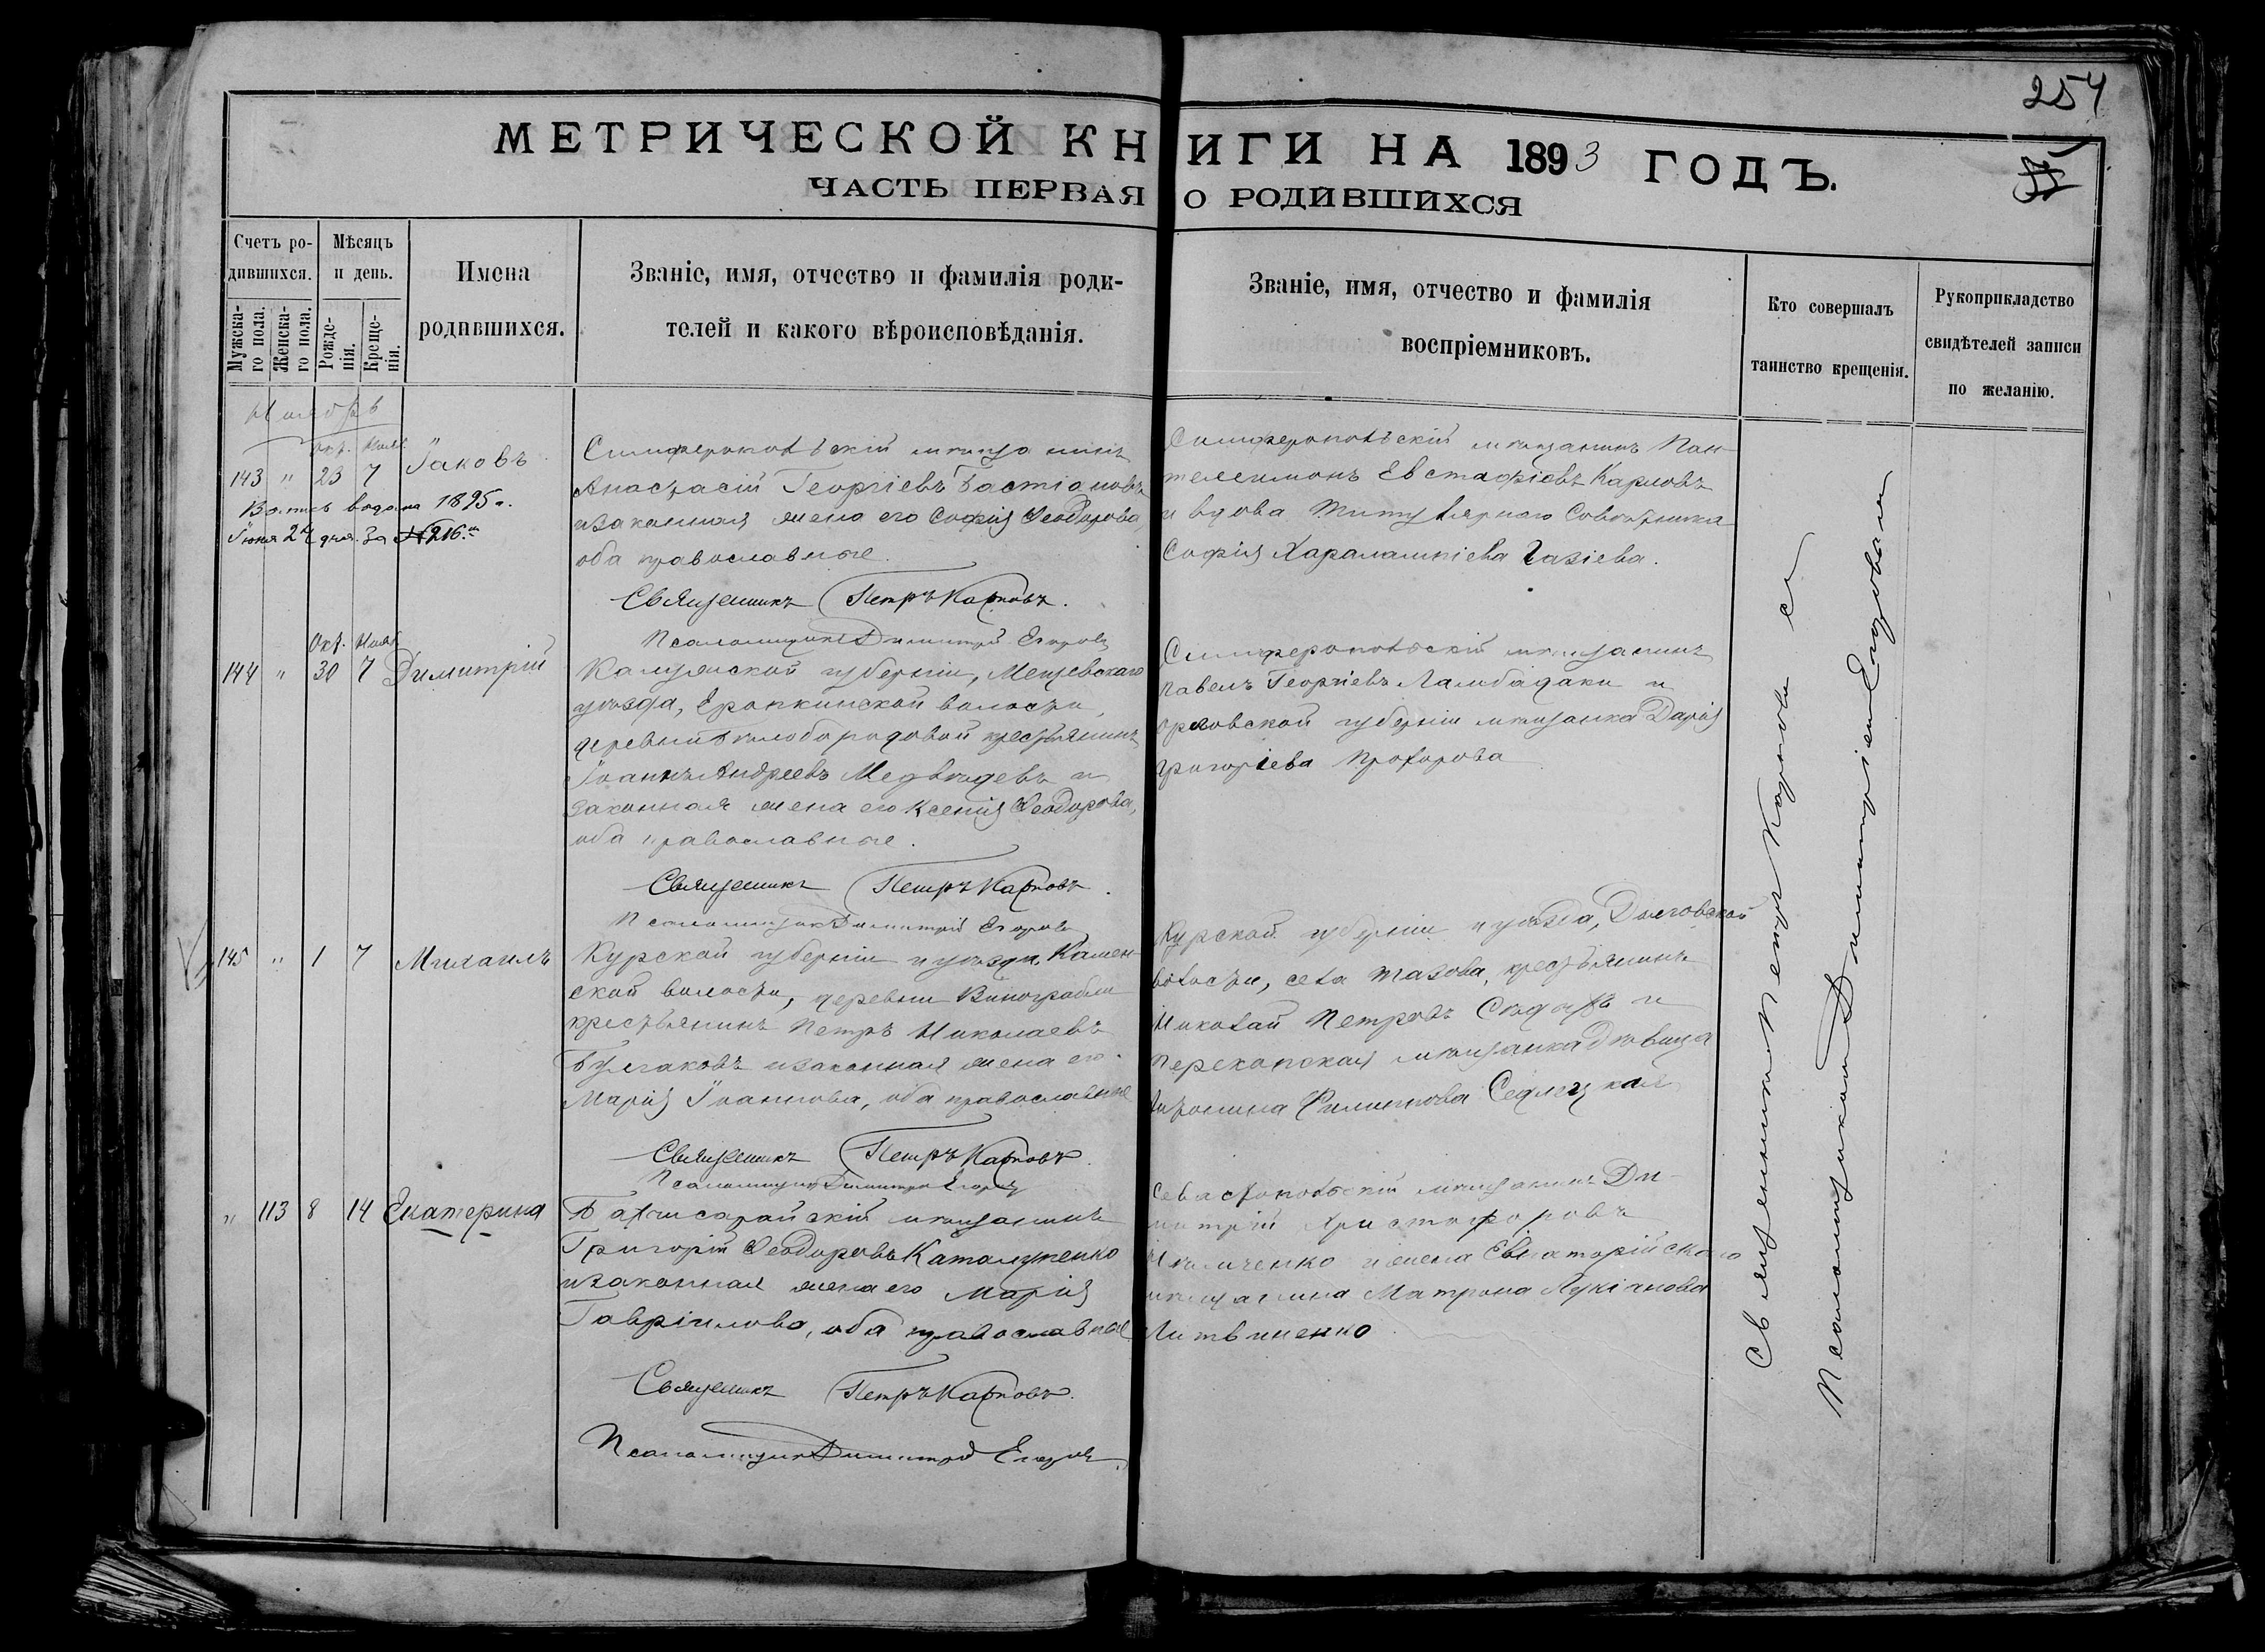 254
МЕТРИЧЕСКОЙ КНИГИ НА 1893 ГОДЪ.
ЧАСТЬ ПЕРВАЯ О РОДИВШИХСЯ
Счетъ ро-
дившихся.
Мужска-
го пола.
Женска-
го пола.
Мѣсяцъ
и день.
Рожде-
нія.
Креще-
нія.
Имена
родившихся.
Званіе, имя, отчество и фамилія роди-
телей и какого вѣроисповѣданія.
Званіе, имя, отчество и фамилія
воспріемниковъ.
Кто совершалъ
таинство крещенія.
Рукоприкладство
свидѣтелей записи
по желанію.
Ноябрь
Окт. Нояб.
143 " 23 7 Іаковъ
Выпись выдана 1895 г.
Іюня 24 дня за № 216.
Симферопольскій мѣщанинъ
Анастасій Георгіевъ Бастіановъ
и законная жена его Софія Ѳеодорова,
оба православные.
Священникъ Петръ Карповъ.
Псаломщикъ Димитрій Егоровъ
Симферопольскій мѣщанинъ Пан-
телеимонъ Евстафіевъ Карповъ
и вдова Титулярнаго Совѣтника
Софія Харалампіева Газіева.
Окт. Нояб.
144 " 30 7 Димитрій
Калужской губерніи, Мещевскаго
уѣзда, Еропкинской волости,
деревни Бѣлобородовой крестьянинъ
Іоаннъ Андреевъ Медвѣдевъ и
законная жена его Ксенія Ѳеодорова,
оба православные.
Священникъ Петръ Карповъ.
Псаломщикъ Димитрій Егоровъ
Симферопольскій мѣщанинъ
Павелъ Георгіевъ Ламбадаки и
Орловской губерніи мѣщанка Дарія
Григоріева Прохорова
145 " 1 7 Михаилъ
Курской губерніи и уѣзда, Камен-
ской волости, деревни Виногробли
крестьянинъ Петръ Николаевъ
Булгаковъ и законная жена его
Марія Іоаннова, оба православные
Священникъ Петръ Карповъ.
Псаломщикъ Димитрій Егоровъ
Курской губерніи и уѣзда, Дьяговской
волости, села Тазова, крестьянинъ
Николай Петровъ Сѣдыхъ и
Перекопская мѣщанка дѣвица
Филиппова Седлецкая
" 113 8 14 Екатерина
Бахчисарайскій мѣщанинъ
Григорій Ѳеодоровъ Каталупенко
и законная жена его Марія
Гавріилова, оба православные
Священникъ Петръ Карповъ.
Псаломщикъ Димитрій Егоровъ.
Севастопольскій мѣщанинъ Ди-
митрій Христофоровъ
и жена Евпаторійскаго
мѣщанина Матрона Лукіанова
Литвиненко
Священникъ Петръ Карповъ съ
Псаломщикомъ Димитріемъ Егоровымъ